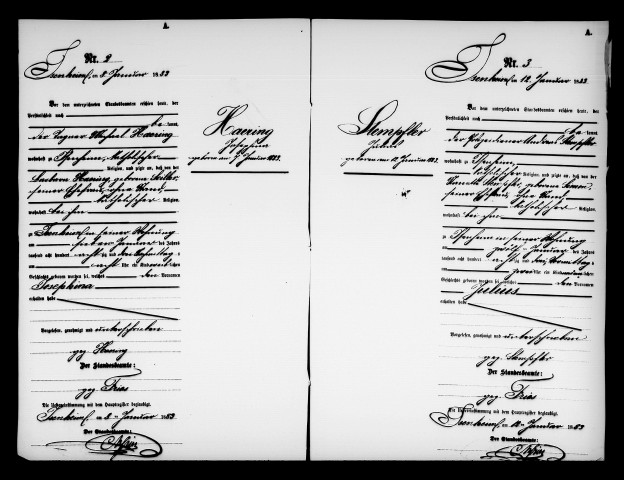 A.
Nr. 2
Isenheim, am 8. Januar 1883
Vor dem unterzeichneten Standesbeamten erschien heute, der
Persönlichkeit nach
be kannt,
der Tagner Michael Haering
wohnhaft zu Isenheim, katholischer
Religion, und zeigte an, daß von der
Barbara Haering, geborene
seiner Ehefrau, ohne Stand,
katholischer Religion,
wohnhaft bei ihm
zu Isenheim in seiner Wohnung
am siebenten Januar des Jahres
tausend acht hundert achtzig und drei Nachmittags
um acht Uhr ein Kind weiblichen
Geschlechts geboren worden sei, welches den Vornamen
Josephina
erhalten habe
Vorgelesen, genehmigt und unterschrieben
gez. Haering
Der Standesbeamte:
gez. Frias
Die Uebereinstimmung mit dem Hauptregister beglaubigt.
Isenheim, am 8. Januar 1883
Der Standesbeamte:
Haering
Josephina
geboren am 7. Januar 1883.
A.
Nr. 3
Isenheim, am 12. Januar 1883
Vor dem unterzeichneten Standesbeamten erschien heute, der
Persönlichkeit nach
be kannt,
der Andreas Stempfler
wohnhaft zu Isenheim,
katholischer Religion, und zeigte an, daß von der
Stempfler, geborene
seiner Ehefrau, ohne Stand,
katholischer Religion,
wohnhaft bei ihm
zu Isenheim in seiner Wohnung
am zwölften Januar des Jahres
tausend acht hundert achtzig und drei Vormittags
um zwei Uhr ein Kind männlichen
Geschlechts geboren worden sei, welches den Vornamen
Julius
erhalten habe
Vorgelesen, genehmigt und unterschrieben
gez. Stempfler
Der Standesbeamte:
gez. Frias
Die Uebereinstimmung mit dem Hauptregister beglaubigt.
Isenheim, am 12. Januar 1883
Der Standesbeamte:
Stempfler
Julius
geboren am 12. Januar 1883.